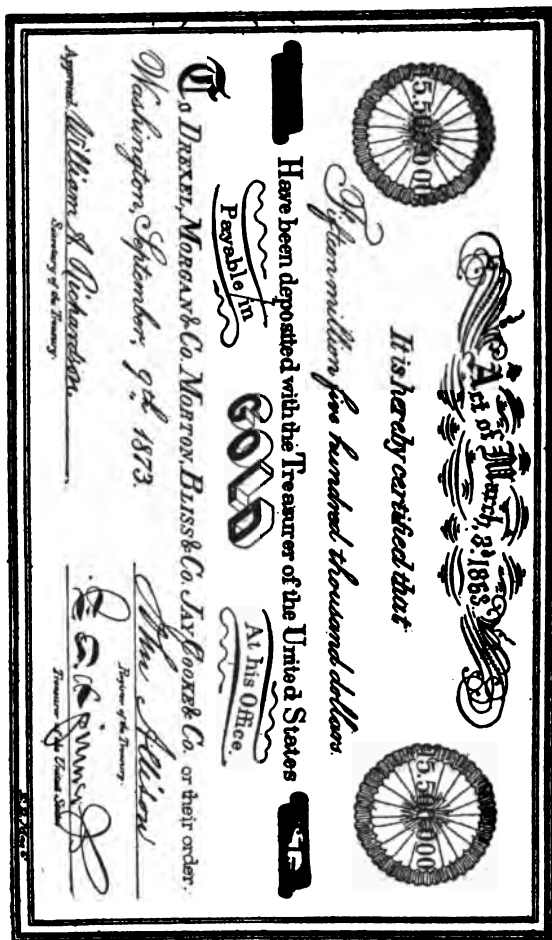 Act of March, 3ᵈ. 1863.
15.500.000
15.500.000
It is hereby certified that
Fifteen million five hundred thousand dollars.
Have been deposited with the Treasurer of the United States
Payable in
GOLD
At his Office.
To DREXEL, MORGAN & CO. MORTON, BLISS & CO. JAY COOKE & CO. or their order.
Washington, September, 9th 1873.
John Allison
Register of the Treasury.
Approved. William A Richardson
Secretary of the Treasury.
Treasurer of the United States